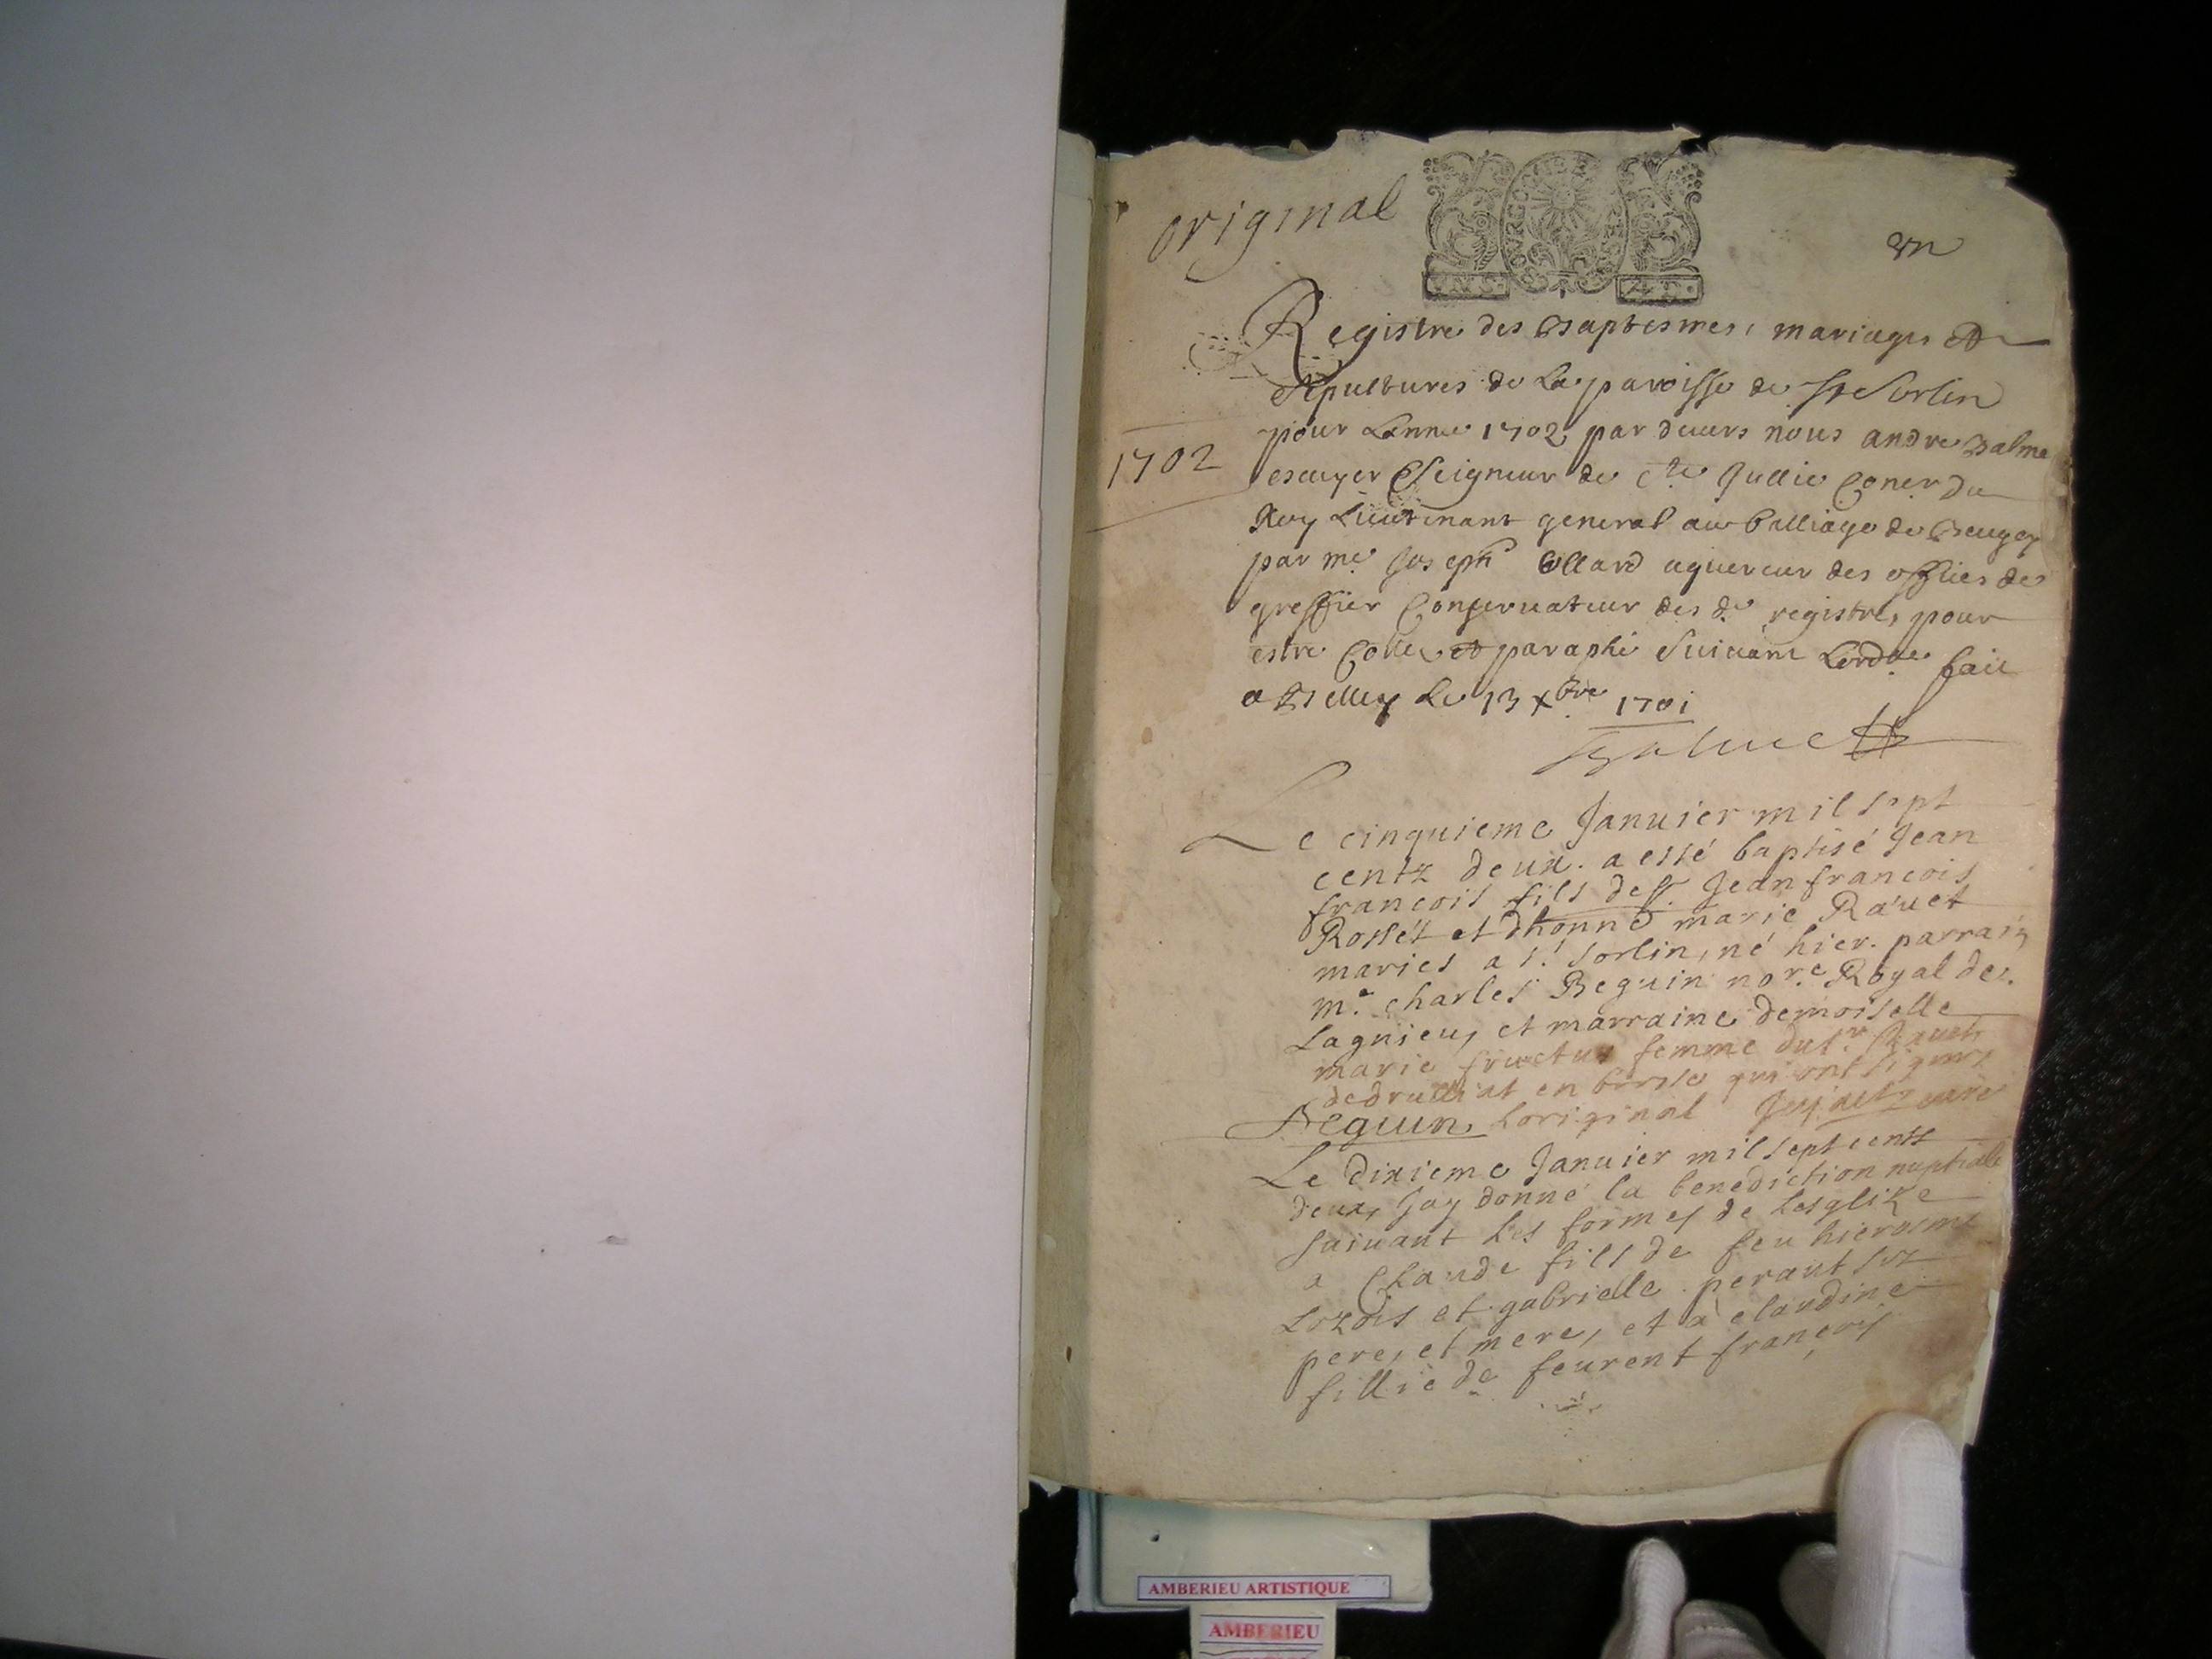 original
BOURGOGNE
un
Registre des Baptesmes, mariages et
sepultures de La paroisse de St Sorlin
pour Lannee 1702 par devers nous andre Balme
1702
escuyer Seigneur de Ste Jullie Coner du
Roy Lieutenant general au balliage de Beugey
par me Joseph ollard aquereur des offices de
greffier Conservateur des d. registres, pour
estre Cotté et paraphé Suivant Lordce fait
a Belley Le 13 xbre 1701
Balme
Le cinquieme Januier mil sept
centz deux. a esté baptisé Jean
francois fils de sr. Jean francois
Rosset et dhonne marie Rauet
maries a st. sorlin, né hier. parrain
me. charles Beguin nore. Royal de
Lagnieu, et marraine demoiselle
marie fructus femme du sr
de druilliat en bresse qui ont signes
Beguin Loriginal curé
Le dixieme Januier mil sept cents
deux, Jay donné la benediction nuptiale
suiuant les formes de Lesglize
a Claude fils de feu hierosme
Lozdis et gabrielle peraut ses
pere, et mere, et à claudine
fillie de feurent françois
AMBERIEU ARTISTIQUE
AMBERIEU